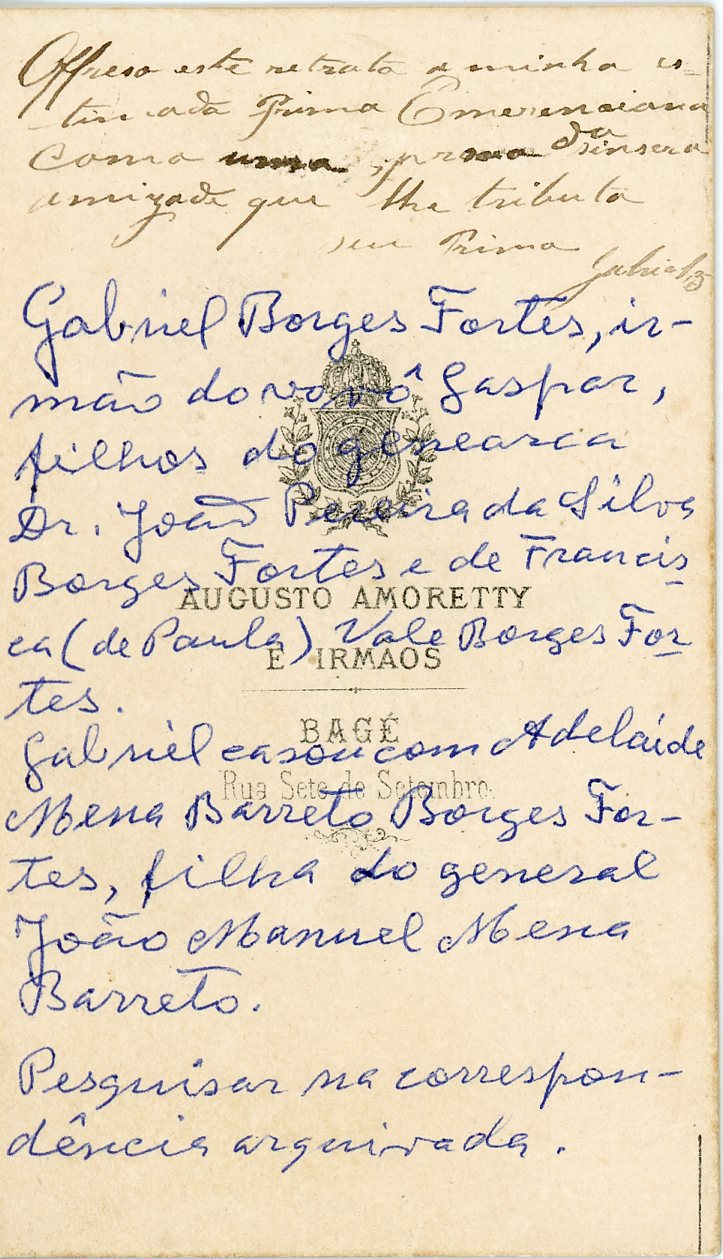 Offreso este retrato a minha es-
-timada Prima Emerenciana
como uma prova da sinsera
amizade que lhe tributa
seu Primo
Gabriel B
Gabriel Borges Fortes, ir-
mão do vovô Gaspar,
filhos do genearca
Dr. João Pereira da Silva
Borges Fortes e de Francis-
ca (de Paula) Vale Borges For-
tes.
Gabriel casou com Adelaide
Mena Barreto Borges For-
tes, filha do general
João Manuel Mena
Barreto.
Pesquisar na correspon-
dência arquivada.
AUGUSTO AMORETTY
E IRMAOS
BAGÉ
Rua Sete de Setembro